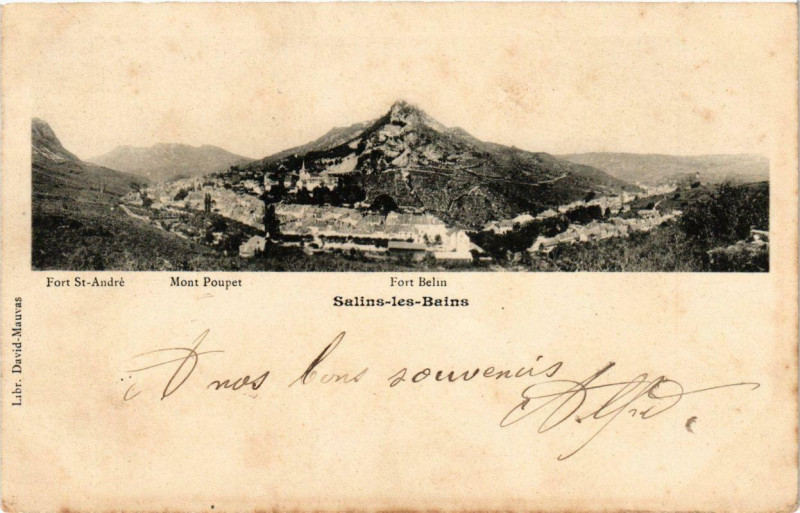 Fort St-Andrè Mont Poupet Fort Belin
Salins-les-Bains
Libr. David-Mauvas
A nos bons souvenirs